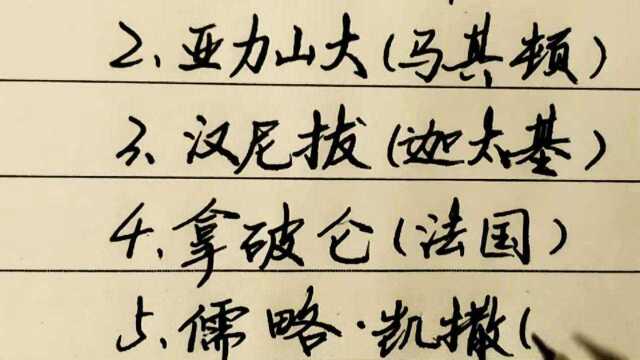 2、亚力山大(马其顿)
3、汉尼拔(迦太基)
4、拿破仑(法国)
5、儒略·凯撒(